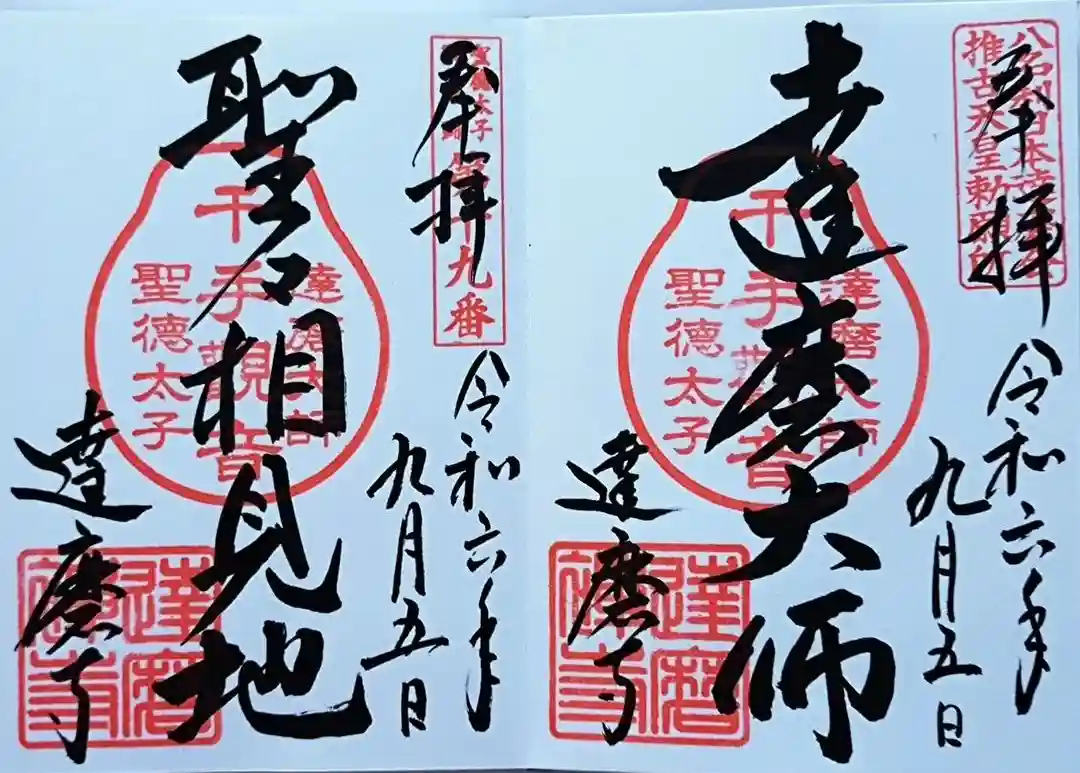 奉拝
八名刹日本達磨
推古天皇勅願所
令和六年
九月五日
達磨大師
千手観音
達磨大師
聖徳太子
達磨寺
達磨寺
奉拝
聖徳太子
第十九番
令和六年
九月五日
聖君相見地
千手観音
達磨大師
聖徳太子
達磨寺